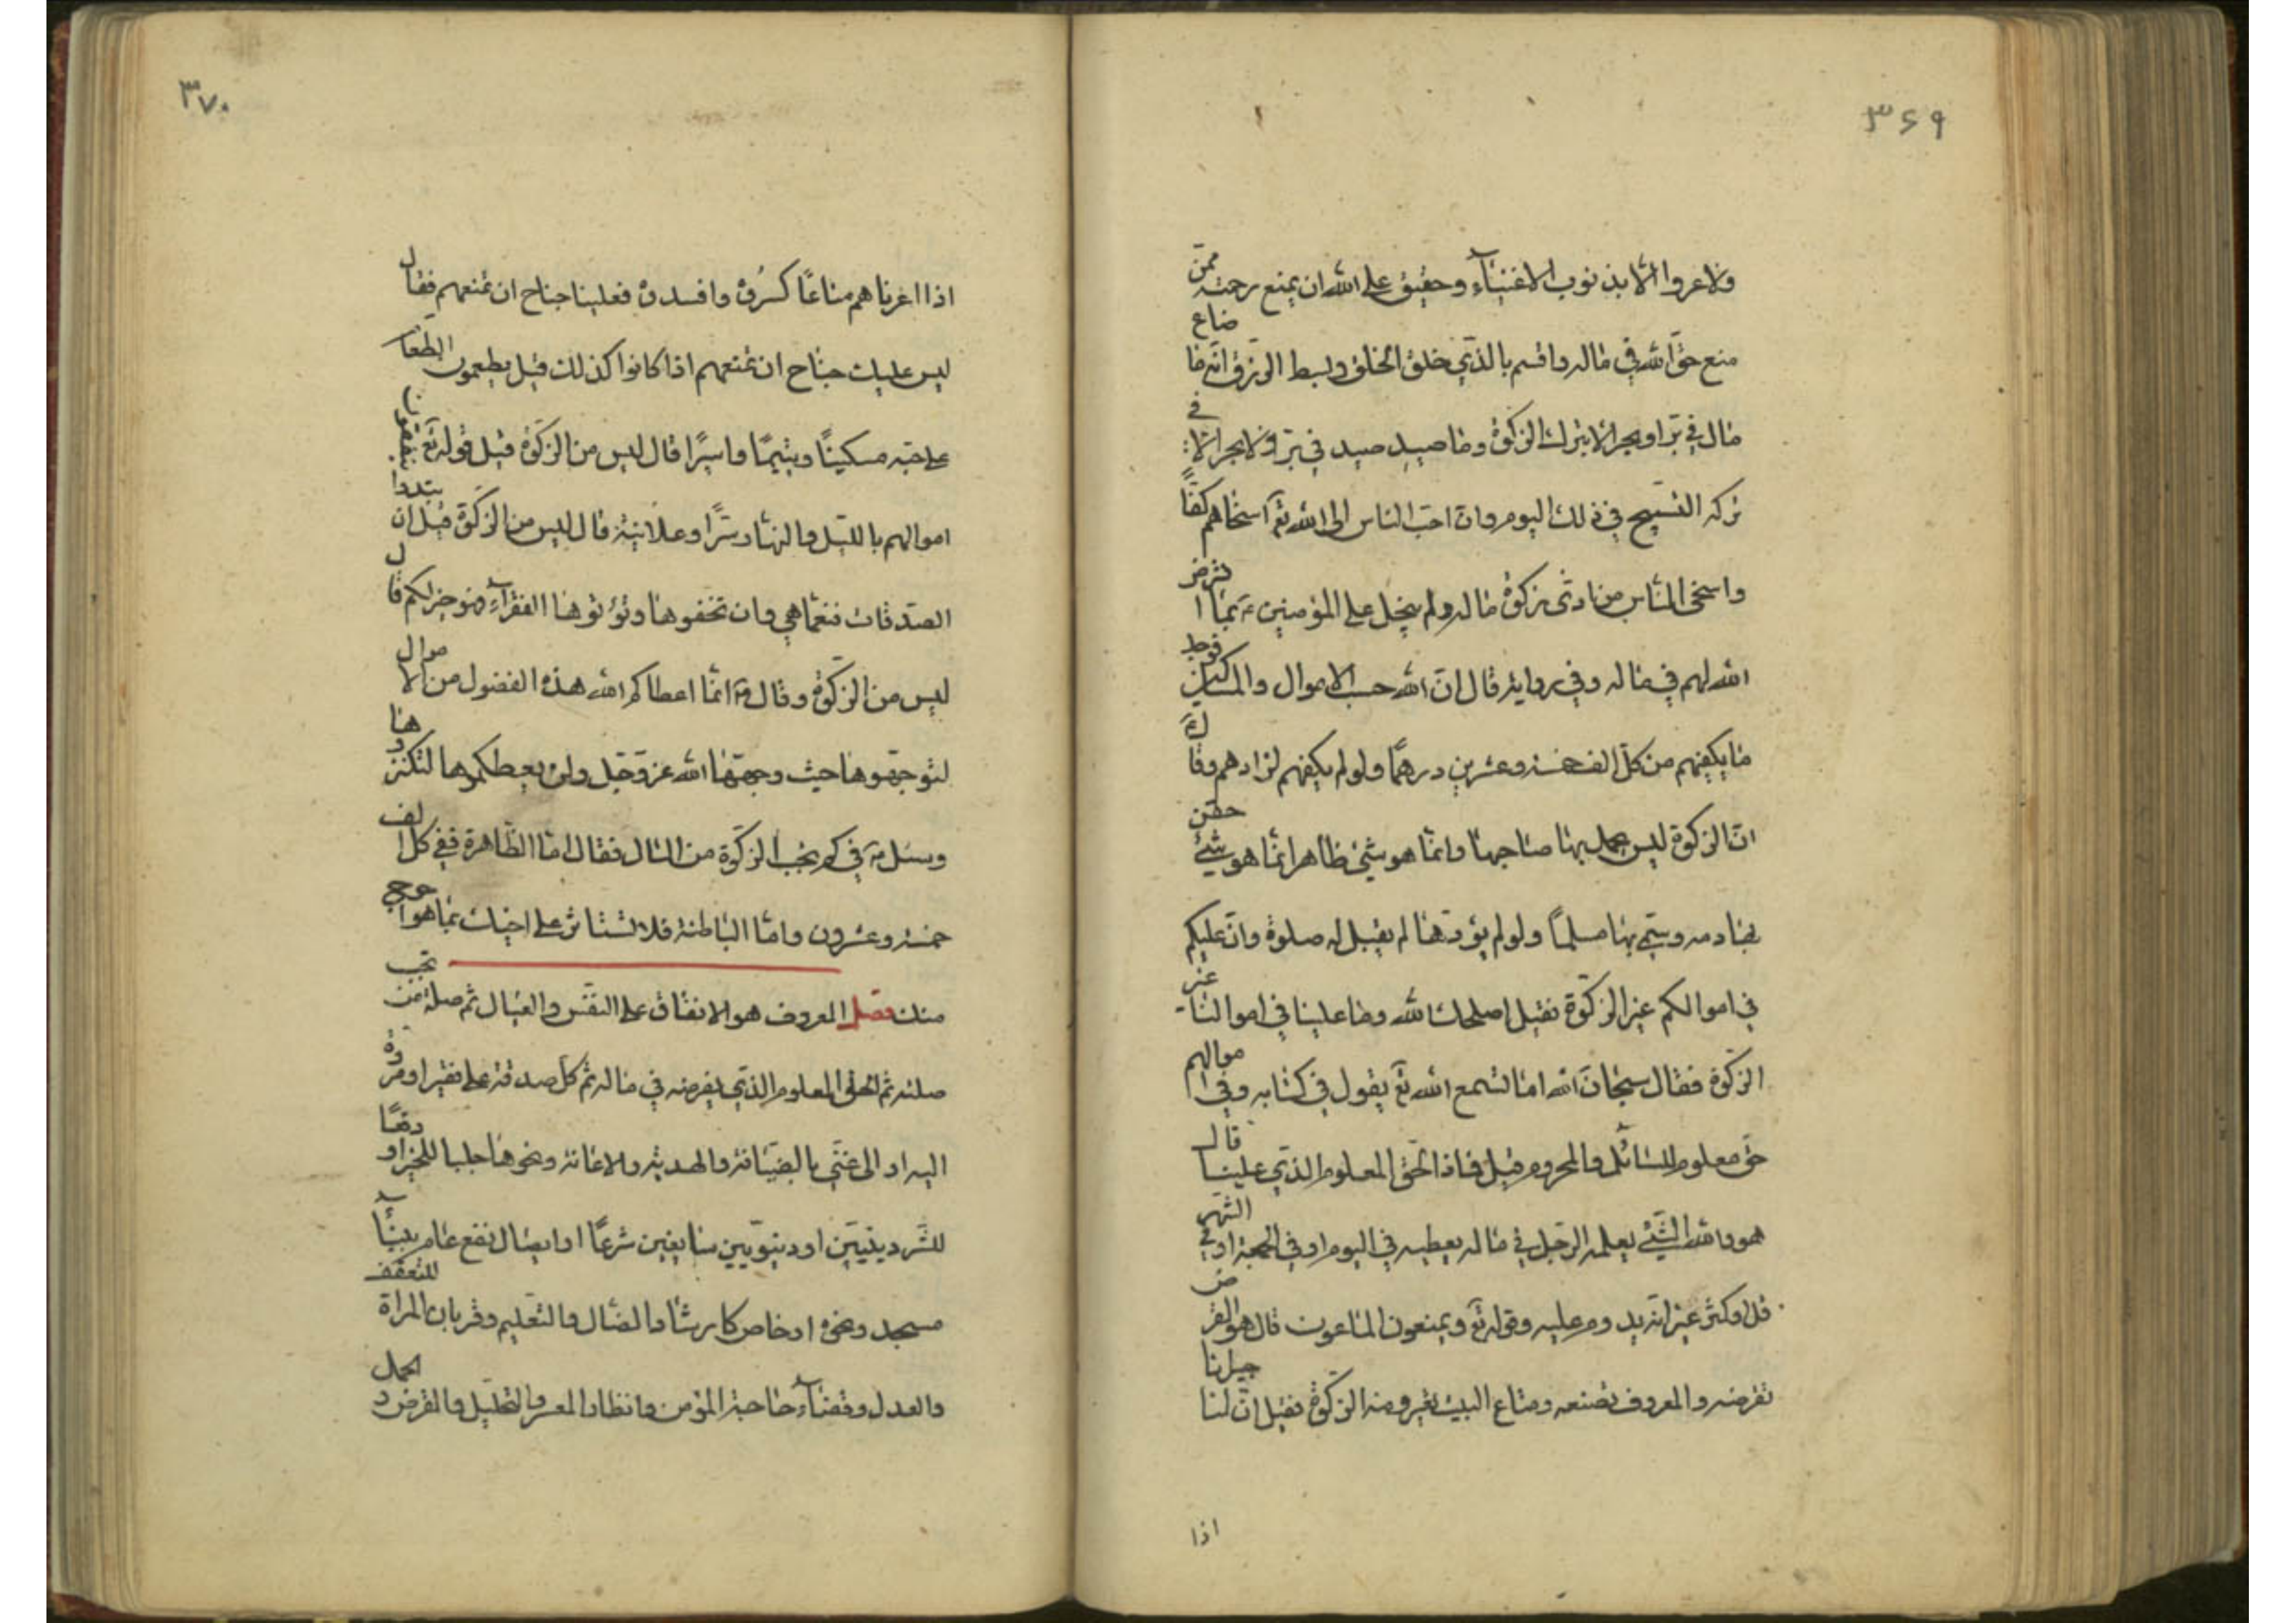 ۳۶۹
ولا عروا الا بذنوب الاغنيآء وحقيق على الله ان يمنع رحمته ممن
منع حق الله في ماله واقسم بالذي خلق الخلق وبسط الرزق انه ما ضاع
مال في بر او بحر الا بترك الزكوة وما صيد صيد في بر ولا بحر الا في
تركه التسبيح في ذلك اليوم وان احب الناس الى الله تع اسخاهم كفا
واسخى الناس من ادى زكوة ماله ولم يبخل على المؤمنين بما افترض
الله لهم في ماله وفي رواية قال ان الله حسب الاموال والمساكين فوجد
ما يكفيهم من كل الف خمسة وعشرين درهما ولو لم يكفهم لزادهم وقال ع
ان الزكوة ليس يحمد بها صاحبها وانما هو شئ ظاهر انما هو شئ حقن
بها دمه وسمي بها مسلما ولو لم يؤدها لم يقبل له صلوة وان عليكم
في اموالكم غير الزكوة فقيل اصلحك الله وما علينا في اموالنا غير
الزكوة فقال سبحان الله اما تسمع الله تع يقول في كتابه وفي اموالهم
حق معلوم للسائل والمحروم قيل فماذا الحق المعلوم الذي علينا قال
هو والله الشئ يعلمه الرجل في ماله يعطيه في اليوم او في الجمعة او في الشهر
قل او كثر غير انه يدوم عليه وقوله تع ويمنعون الماعون قال هو القرض
تقرضه والمعروف تصنعه ومتاع البيت تعيره ومنه الزكوة فقيل ان لنا جيرانا
اذا
۳۷۰
اذا اعرناهم متاعا كسروه وافسدوه فعلينا جناح ان نمنعهم فقال
ليس عليك جناح ان تمنعهم اذا كانوا كذلك قيل يطعمون الطعام
على حبه مسكينا ويتيما واسيرا قال ليس من الزكوة قيل قوله تع ينفقون
اموالهم بالليل والنهار سرا وعلانية قال ليس من الزكوة قيل ان تبدوا
الصدقات فنعما هي وان تخفوها وتؤتوها الفقرآء فهو خير لكم قال
ليس من الزكوة وقال ع انما اعطاكم الله هذه الفضول من الاموال
لتوجهوها حيث وجهها الله عز وجل ولم يعطكموها لتكنزوها
وسئل ع في كم يجب الزكوة من المال فقال اما الظاهرة ففي كل الف
خمسة وعشرون واما الباطنة فلا تستاثر على اخيك بما هو احوج
منك فصل المعروف هو الانفاق على النفس والعيال ثم صلة من تجب
صلته ثم الحق المعلوم الذي يفرضه في ماله ثم كل صدقة على فقير او مروة
اليه او الى غني بالضيافة والهدية والاعانة ونحوها جلبا للخير او دفعا
للشر دينيين او دنيويين سايغين شرعا او ايصال نفع عام ببنآء
مسجد ونحوه او خاص كارشاد الضال والتعليم وقربان المراة للتعفف
والعدل وقضآء حاجة المؤمن وانظار المعسر والتحليل والقرض والحمل